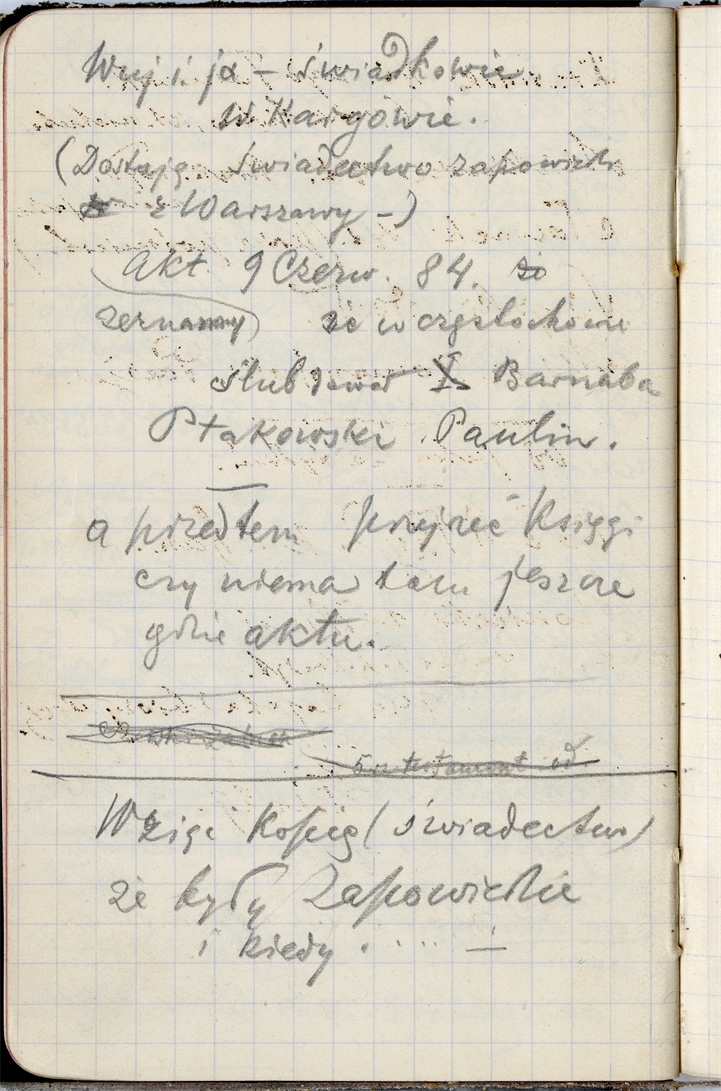 Wuj i ja – świadkowie
w Kargowie.
(Dostaję świadectwo zapowiedzi
z Warszawy –)
Akt 9 Czerw. 84.
że w częstochowie
ślubował X Barnaba
Ptakowski Paulin.
a przedtem przejrzeć Księgi
czy niema tam jeszcze
gdzie aktu.
testament od
Wziąć Kopię (świadectwo)
że były Zapowiedzie
i kiedy . . . . –